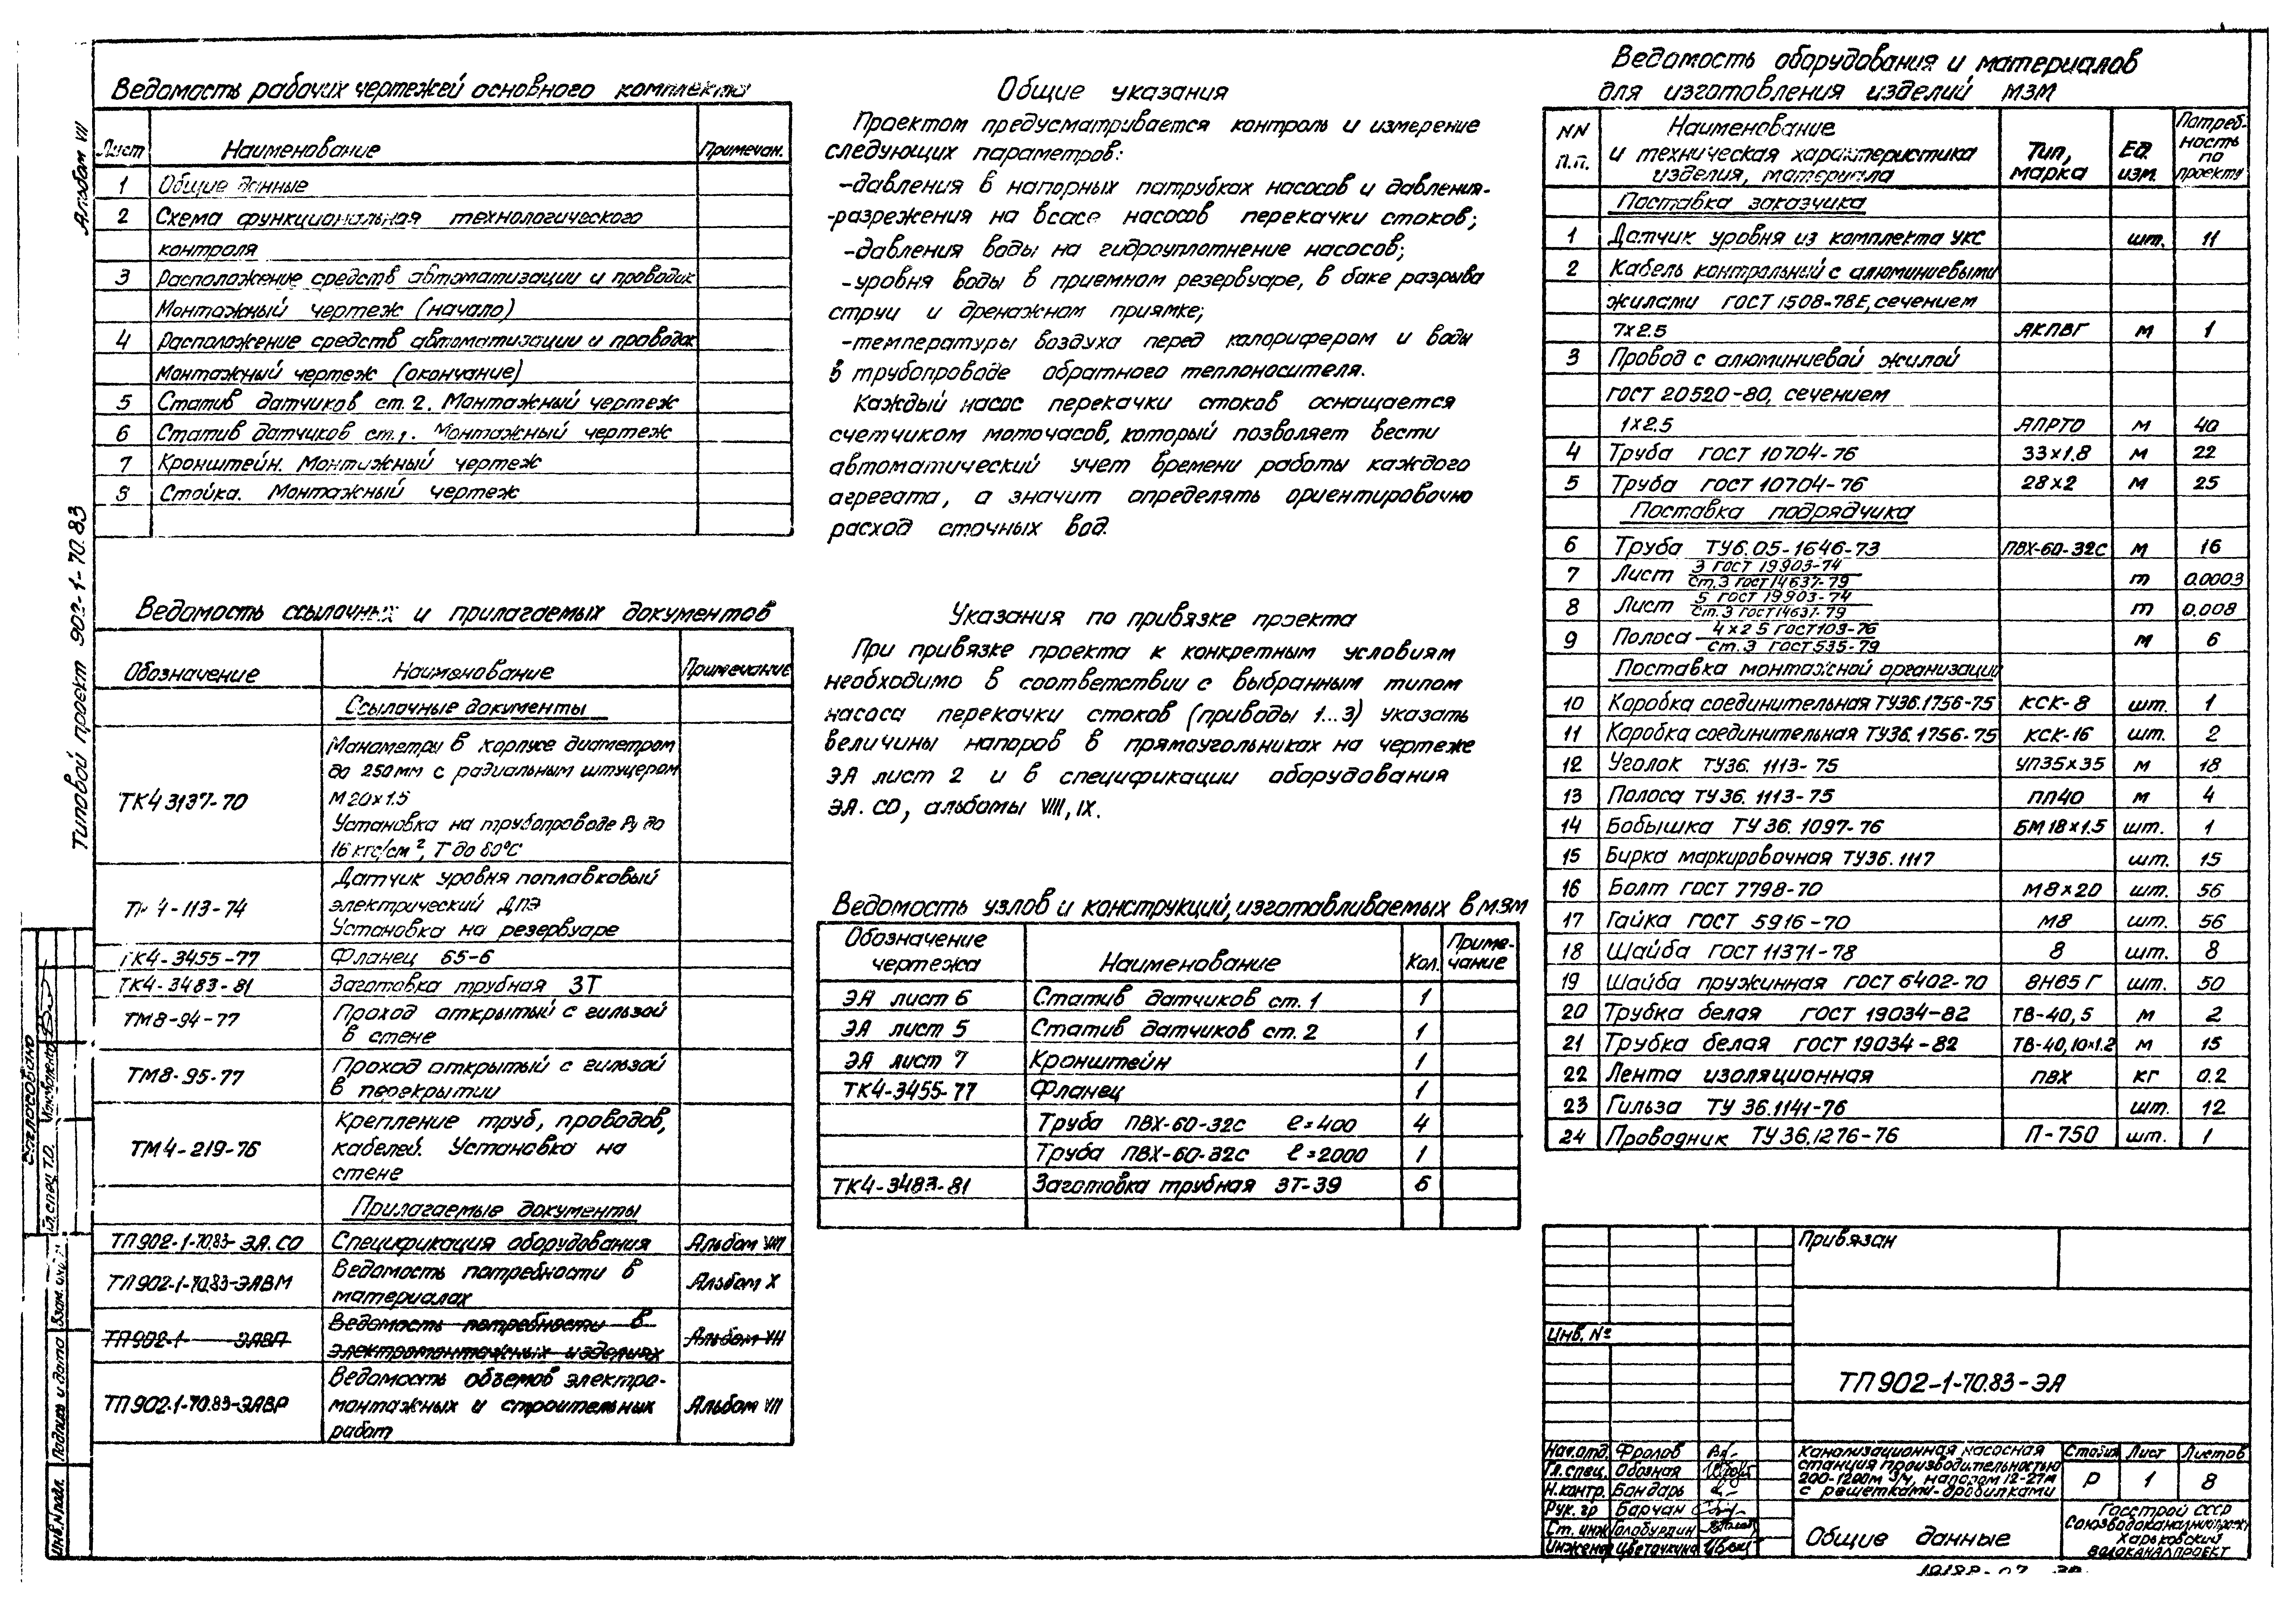 Альбом VII
Типовой проект 902-1-70.83
Ведомость рабочих чертежей основного комплекта
Лист Наименование Примечан.
1 Общие данные
2 Схема функциональная технологического
контроля
3 Расположение средств автоматизации и проводок
Монтажный чертеж (начало)
4 Расположение средств автоматизации и проводок
Монтажный чертеж (окончание)
5 Статив датчиков ст. 2. Монтажный чертеж
6 Статив датчиков ст. 1. Монтажный чертеж
7 Кронштейн. Монтажный чертеж
8 Стойка. Монтажный чертеж
Ведомость ссылочных и прилагаемых документов
Обозначение Наименование Примечание
Ссылочные документы
ТК4 3137-70 Манометры в корпусе диаметром
до 250мм с радиальным штуцером
М20х1.5
Установка на трубопроводе Ру до
16 кгс/см², Т до 80°С
4-113-74 Датчик уровня поплавковый
электрический ДПЭ
Установка на резервуаре
ТК4-3455-77 Фланец 65-6
ТК4-3483-81 Заготовка трубная ЗТ
ТМ8-94-77 Проход открытый с гильзой
в стене
ТМ8-95-77 Проход открытый с гильзой
в перекрытии
ТМ4-219-76 Крепление труб, проводов,
кабелей. Установка на
стене
Прилагаемые документы
ТП902-1-70.83-ЭА.СО Спецификация оборудования Альбом VIII
ТП902-1-70.83-ЭАВМ Ведомость потребности в
материалах Альбом X
ТП902-1 ЭАВП Ведомость потребности в
электромонтажных изделиях Альбом VII
ТП902-1-70.83-ЭАВР Ведомость объемов электро-
монтажных и строительных
работ Альбом VII
Общие указания
Проектом предусматривается контроль и измерение
следующих параметров:
-давления в напорных патрубках насосов и давления-
-разрежения на всасе насосов перекачки стоков;
-давления воды на гидроуплотнение насосов;
-уровня воды в приемном резервуаре, в баке разрыва
струи и дренажном приямке;
-температуры воздуха перед калорифером и воды
в трубопроводе обратного теплоносителя.
Каждый насос перекачки стоков оснащается
счетчиком моточасов, который позволяет вести
автоматический учет времени работы каждого
агрегата, а значит определять ориентировочно
расход сточных вод.
Указания по привязке проекта
При привязке проекта к конкретным условиям
необходимо в соответствии с выбранным типом
насоса перекачки стоков (приводы 1...3) указать
величины напоров в прямоугольниках на чертеже
ЭА лист 2 и в спецификации оборудования
ЭА.СО, альбомы VIII, IX.
Ведомость узлов и конструкций, изготавливаемых в МЗМ
Обозначение чертежа Наименование Кол. Приме-
чание
ЭА лист 6 Статив датчиков ст. 1 1
ЭА лист 5 Статив датчиков ст. 2 1
ЭА лист 7 Кронштейн 1
ТК4-3455-77 Фланец 1
Труба ПВХ-60-32С ℓ=400 4
Труба ПВХ-60-32С ℓ=2000 1
ТК4-3483-81 Заготовка трубная ЗТ-39 6
Ведомость оборудования и материалов
для изготовления изделий МЗМ
NN п.п. Наименование
и техническая характеристика
изделия, материала Тип, марка Ед. изм. Потреб-
ность по проекту
Поставка заказчика
1 Датчик уровня из комплекта УКС шт. 11
2 Кабель контрольный с алюминиевыми
жилами ГОСТ 1508-78Е, сечением
7х2.5 АКПВГ м 1
3 Провод с алюминиевой жилой
ГОСТ 20520-80, сечением
1х2.5 АПРТО м 40
4 Труба ГОСТ 10704-76 33х1.8 м 22
5 Труба ГОСТ 10704-76 28х2 м 25
Поставка подрядчика
6 Труба ТУ6.05-1646-73 ПВХ-60-32С м 16
7 Лист 3 ГОСТ 19903-74
Ст.3 ГОСТ 14637-79 т 0.0003
8 Лист 5 ГОСТ 19903-74
Ст.3 ГОСТ 14637-79 т 0.008
9 Полоса 4х25 ГОСТ 103-76
Ст.3 ГОСТ 535-79 м 6
Поставка монтажной организации
10 Коробка соединительная ТУ36.1756-75 КСК-8 шт. 1
11 Коробка соединительная ТУ36.1756-75 КСК-16 шт. 2
12 Уголок ТУ36. 1113-75 УП35х35 м 18
13 Полоса ТУ36. 1113-75 ПП40 м 4
14 Бобышка ТУ 36. 1097-76 БМ18х1.5 шт. 1
15 Бирка маркировочная ТУ36.1117 шт. 15
16 Болт ГОСТ 7798-70 М8х20 шт. 56
17 Гайка ГОСТ 5916-70 М8 шт. 56
18 Шайба ГОСТ 11371-78 8 шт. 8
19 Шайба пружинная ГОСТ 6402-70 8Н65Г шт. 50
20 Трубка белая ГОСТ 19034-82 ТВ-40,5 м 2
21 Трубка белая ГОСТ 19034-82 ТВ-40,10х1.2 м 15
22 Лента изоляционная ПВХ кг 0.2
23 Гильза ТУ 36.1141-76 шт. 12
24 Проводник ТУ36.1276-76 П-750 шт. 1
Привязан
Инв. №
ТП902-1-70.83-ЭА
Нач.отд. Фролов
Гл.спец. Обозная
Н.контр. Бондарь
Рук. гр Барчан
Ст. инж Голобурдин
Инженер Цветочкина
Канализационная насосная
станция производительностью
200-1200м³/ч, напором 12-27м
с решетками-дробилками
Стадия Лист Листов
Р 1 8
Общие данные
Госстрой СССР
Союзводоканалниипроект
Харьковский
Водоканалпроект
Согласовано
Гл.спец Т.О.
Взам. инв.
Подпись и дата
Инв.N подл.